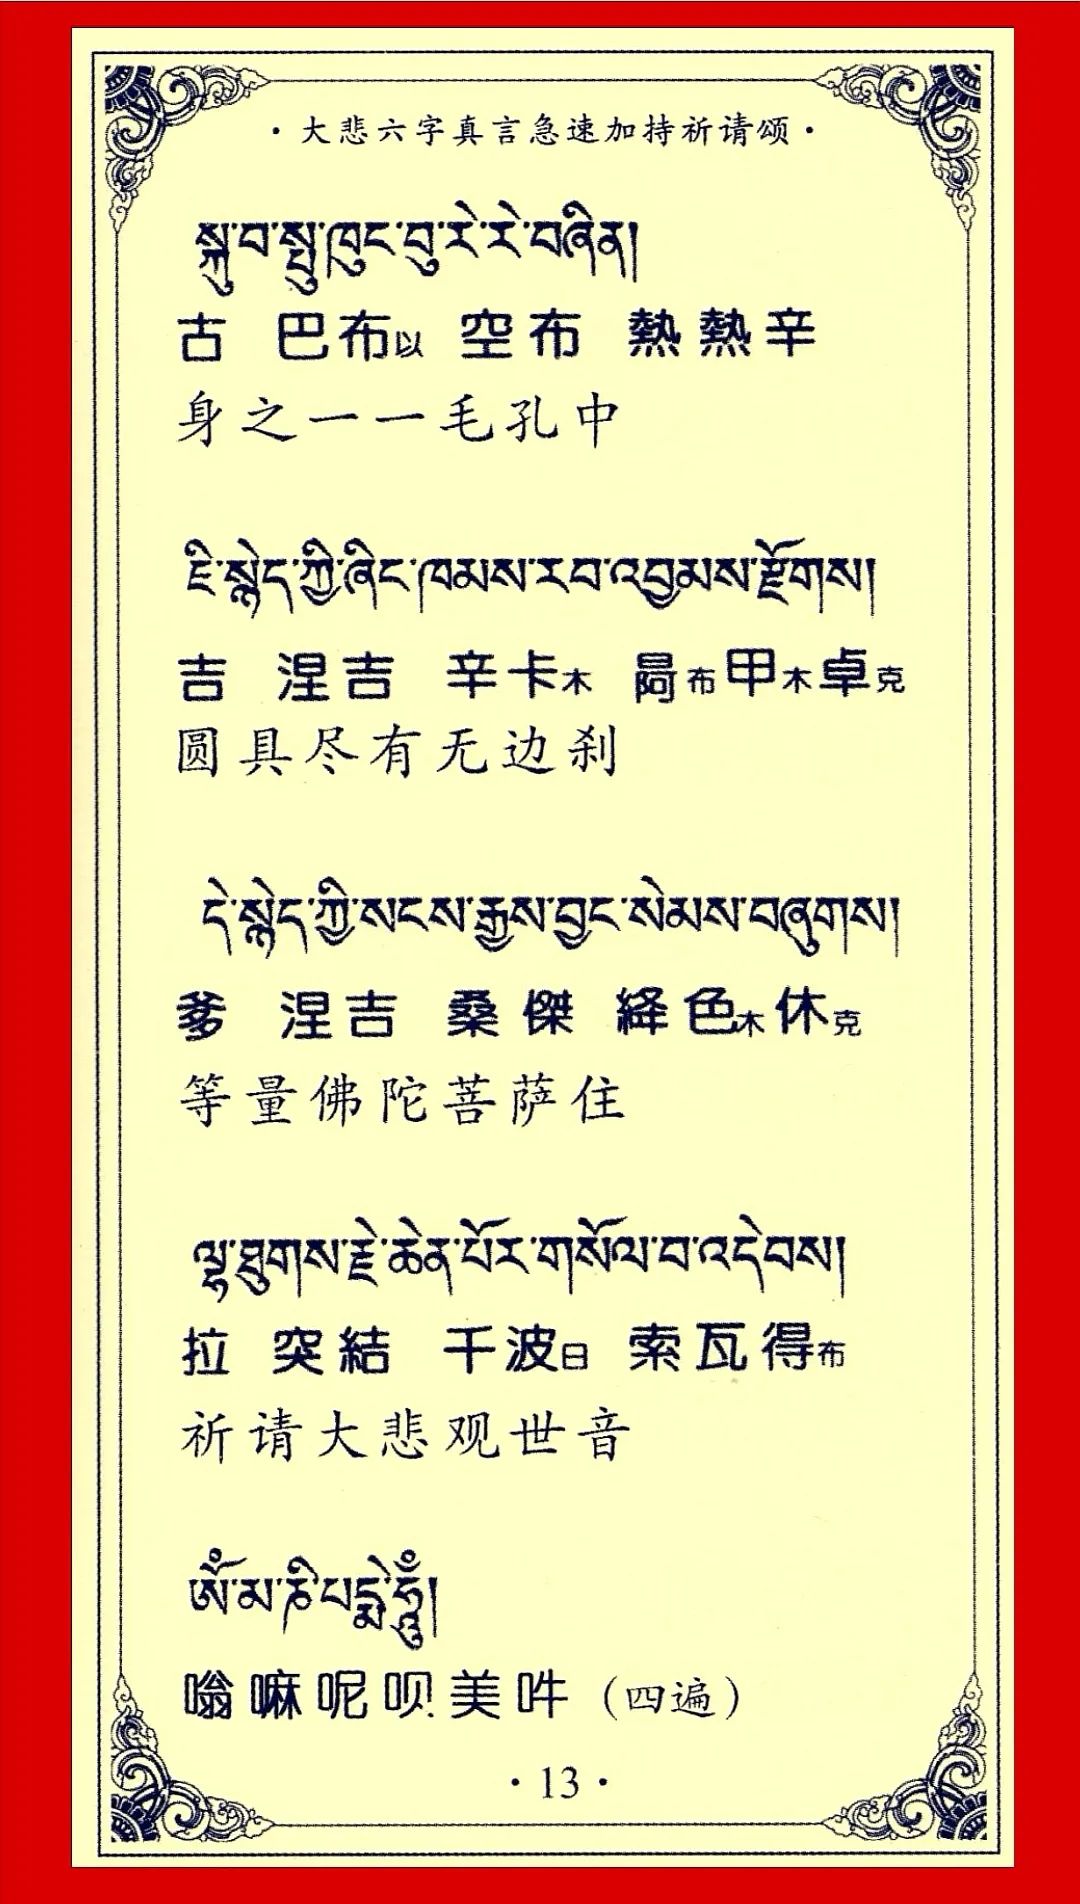 ·大悲六字真言急速加持祈请颂·
སྐུ་བ་སྤུ་ཁུང་བུ་རེ་རེ་བཞིན།
古 巴布以 空布 熱熱辛
身之一一毛孔中
ཇི་སྙེད་ཀྱི་ཞིང་ཁམས་རབ་འབྱམས་རྫོགས།
吉 涅吉 辛卡木 布甲木卓克
圆具尽有无边刹
དེ་སྙེད་ཀྱི་སངས་རྒྱས་བྱང་སེམས་བཞུགས།
爹 涅吉 桑傑 絳色木休克
等量佛陀菩萨住
ལྷ་ཐུགས་རྗེ་ཆེན་པོར་གསོལ་བ་འདེབས།
拉 突結 千波日 索瓦得布
祈请大悲观世音
ཨོཾ་མ་ཎི་པདྨེ་ཧཱུྃ།
嗡嘛呢呗美吽（四遍）
·13·